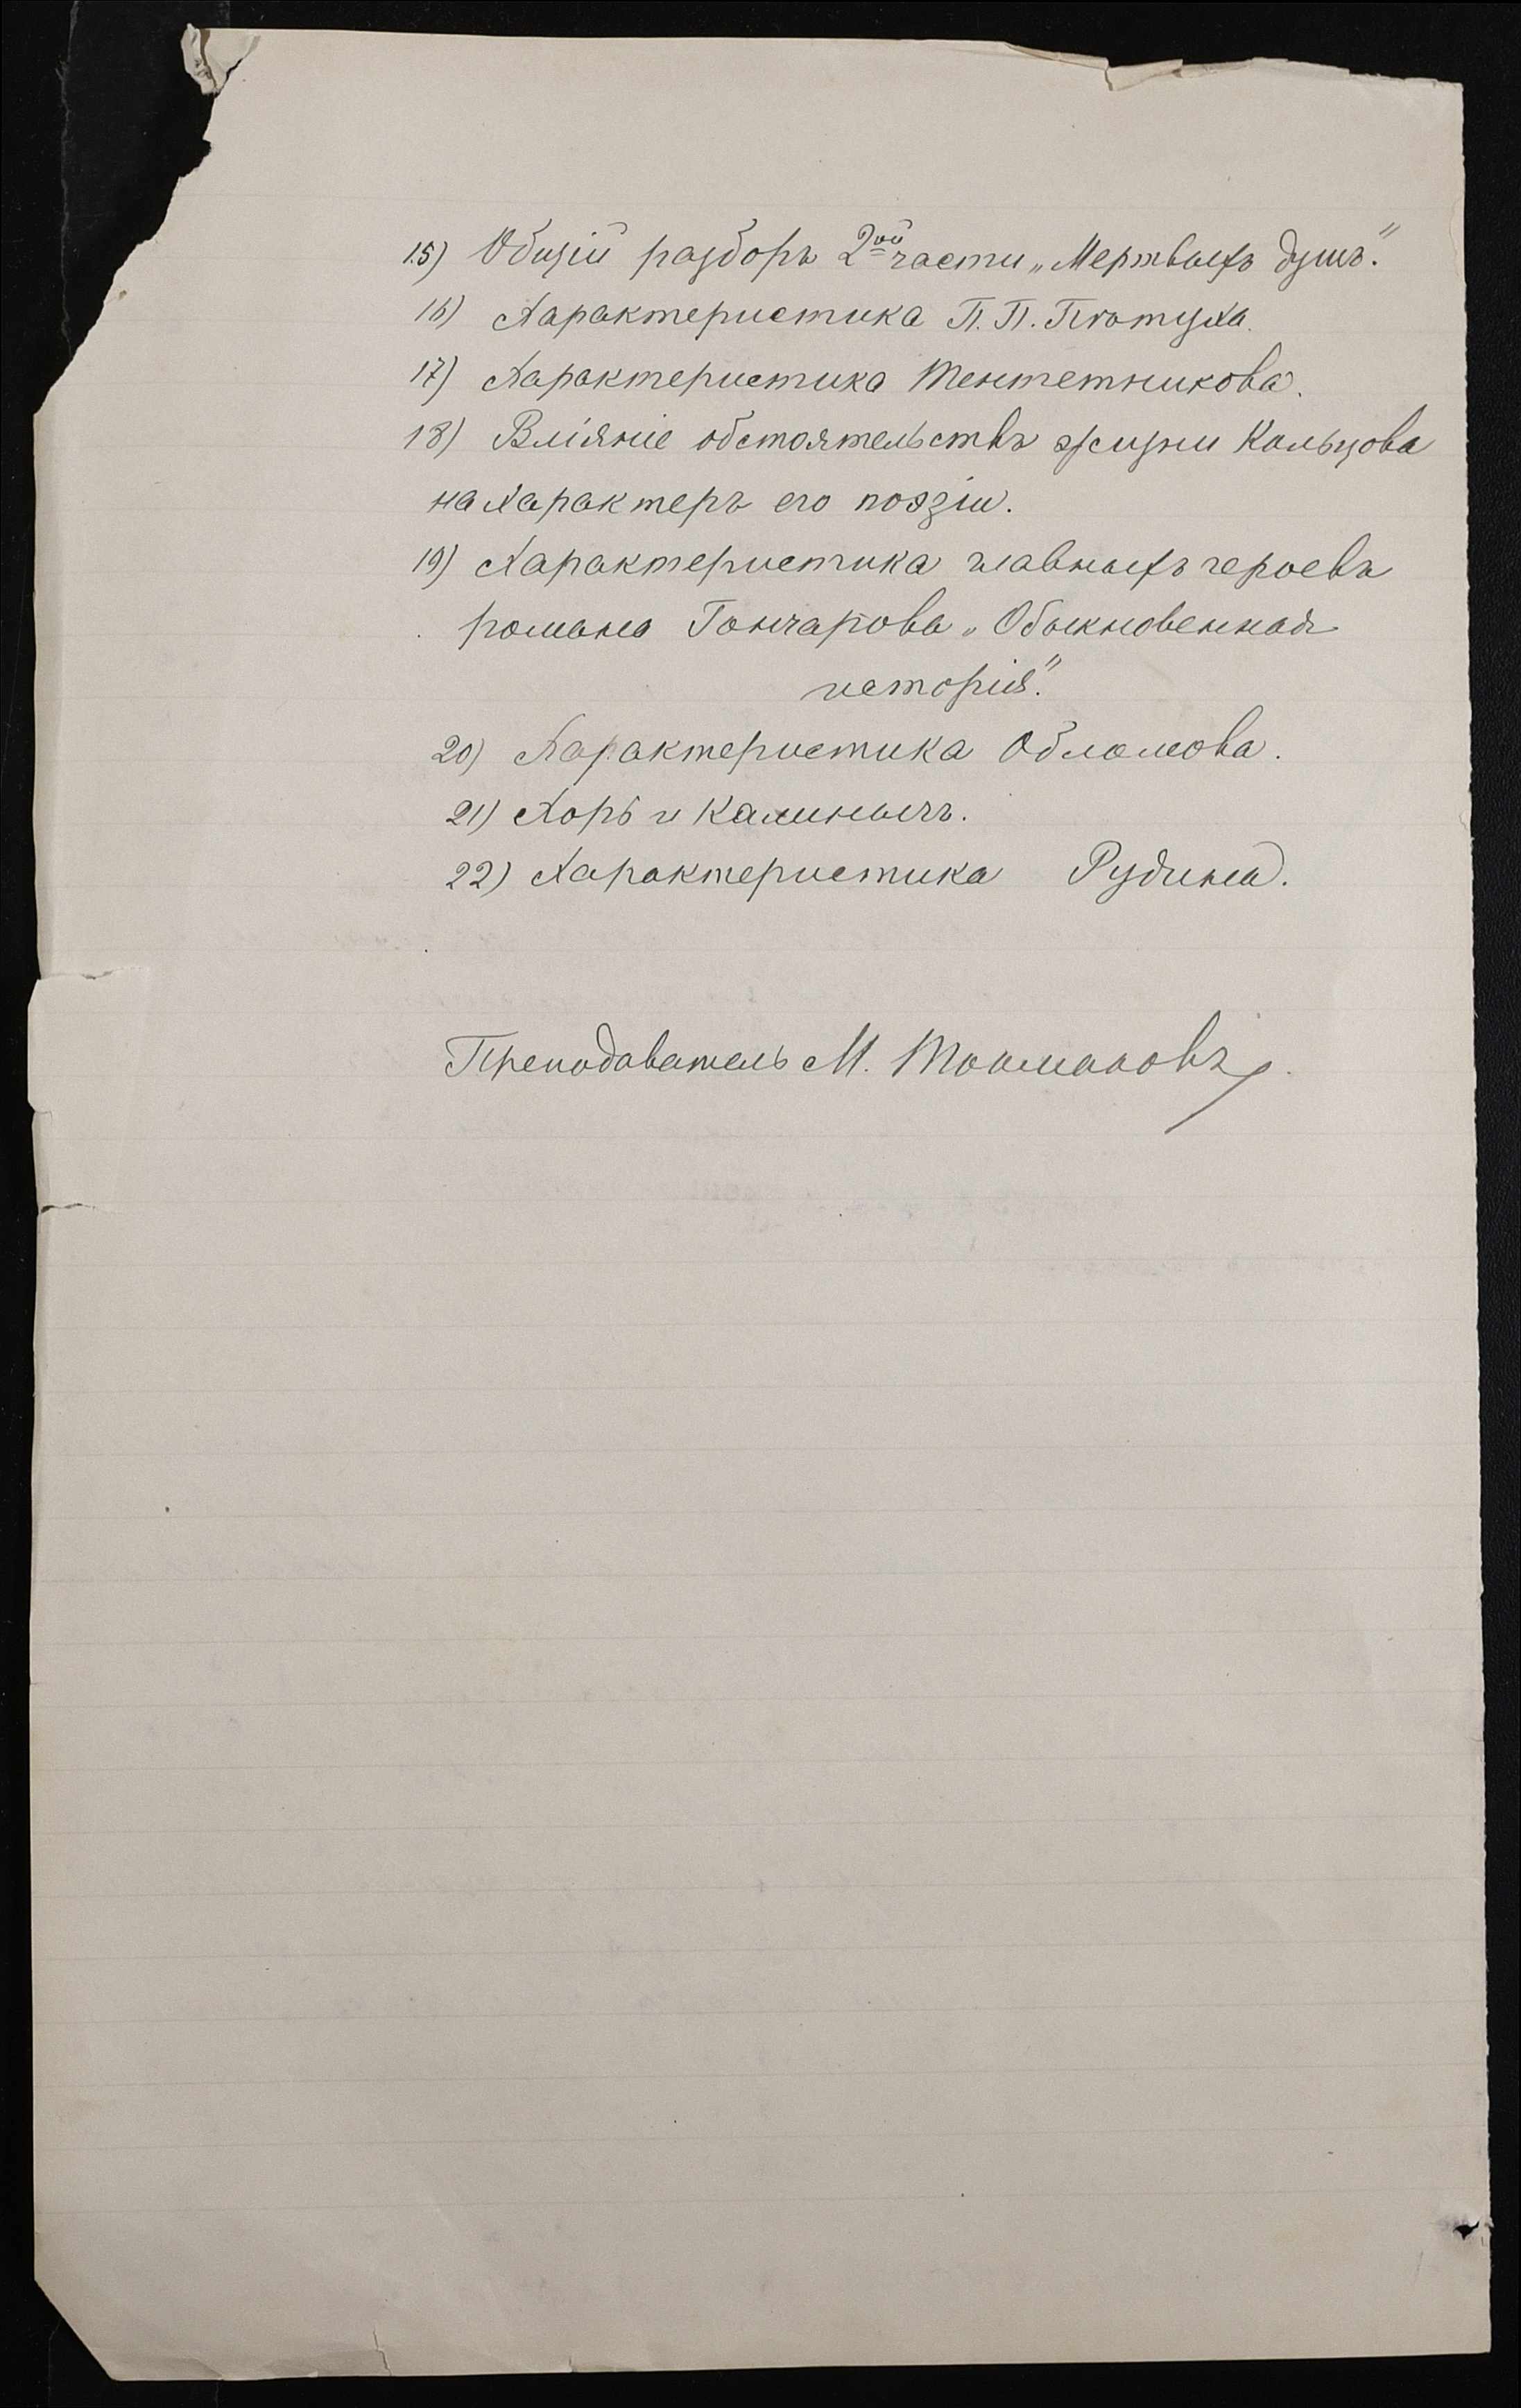 15) Общій разборъ 2ой части „Мертвыхъ душъ".
16) Характеристика П. П. Пѣтуха.
17) Характеристика Тентетникова.
18) Вліяніе обстоятельствъ жизни Кольцова
на характеръ его поэзіи.
19) Характеристика главныхъ героевъ
романа Гончарова „Обыкновенная
исторія".
20) Характеристика Обломова.
21) Хорь и Калинычъ.
22) Характеристика Рудина.
Преподаватель М.